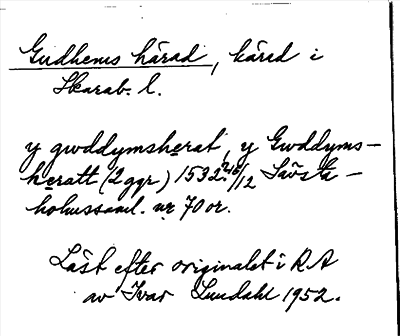 Gudhems härad, härad i
Skarab. l.
y gwddymsherat, y Gwddyms-
heratt (2 ggr) 1532 26/12 Sävsta-
holmssaml. nr 70 or.
Läst efter originalet i RA
av Ivar Lundahl 1952.